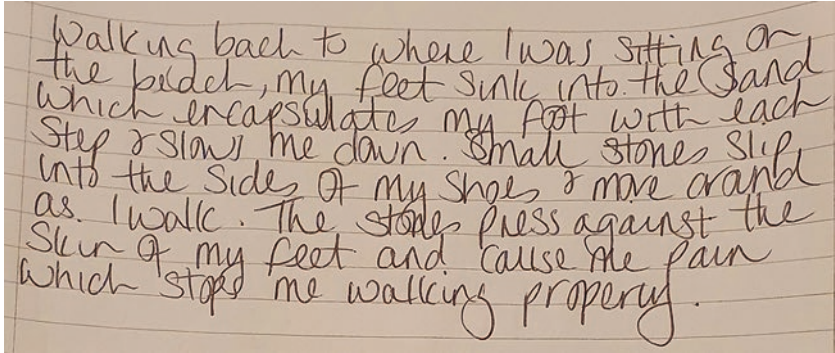 Walking back to where I was sitting on
the beach, my feet sink into the sand
which encapsulates my foot with each
step & slows me down. Small stones slip
into the sides of my shoes & move around
as I walk. The stones press against the
skin of my feet and cause me pain
which stops me walking properly.